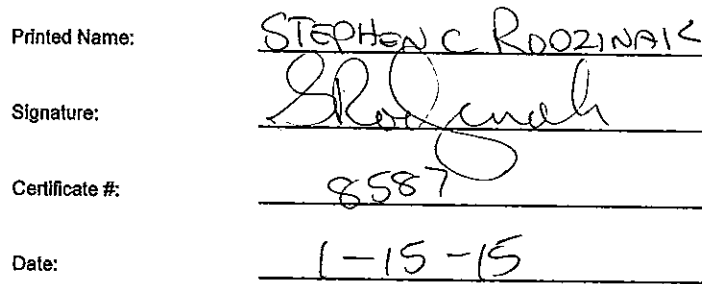 Printed Name: STEPHEN C RDOZINAK
Signature: SRodzinak
Certificate #: 8587
Date: 1-15-15